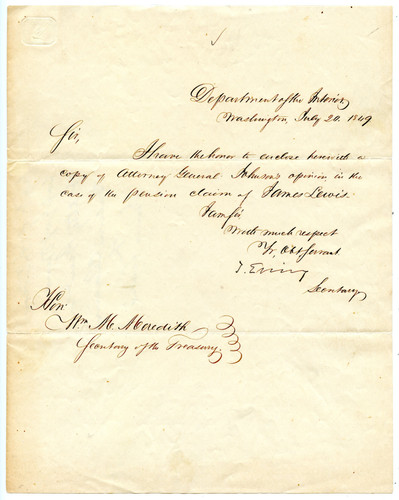 Department of the Interior
Washington, July 20. 1849
Sir,
I have the honor to enclose herewith a
copy of Attorney General Johnson's opinion in the
case of the pension claim of James Lewis.
I am Sir
With much respect
Yr. Obt Servant
T. Ewing
Secretary
Hon:
Wm. M. Meredith
Secretary of the Treasury.